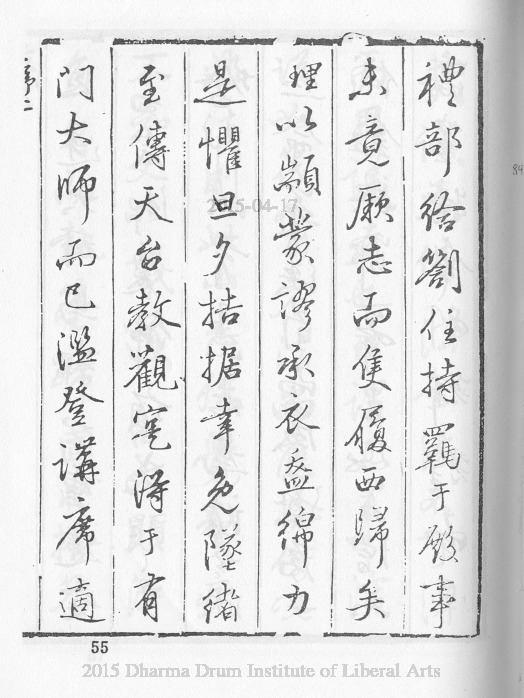 禮部給劄住持羈于殿事
未竟厥志而隻履西歸矣
理以顓蒙謬承衣盋綿力
是懼旦夕拮据幸免墜緒
至傳天台教觀寔得于有
門大師而已濫登講席適
序二
55
2015-04-17
2015 Dharma Drum Institute of Liberal Arts